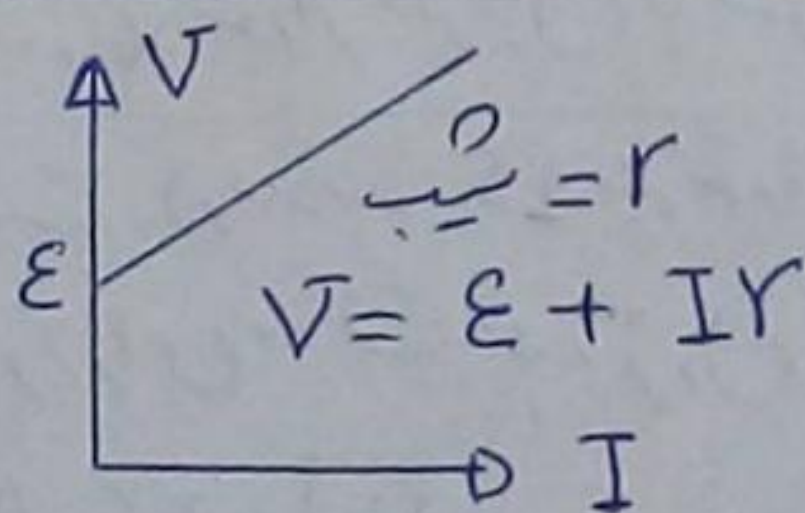 V
شیب = r
ε
V = ε + Ir
I